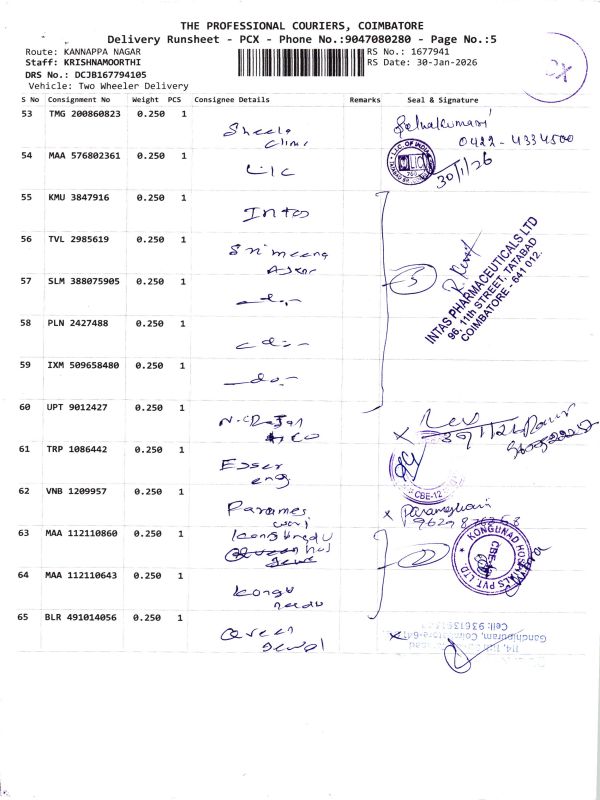 THE PROFESSIONAL COURIERS, COIMBATORE
Delivery Runsheet - PCX - Phone No.:9047080280 - Page No.:5
Route: KANNAPPA NAGAR
RS No.: 1677941
Staff: KRISHNAMOORTHI
RS Date: 30-Jan-2026
DRS No.: DCJB167794105
Vehicle: Two Wheeler Delivery
S No Consignment No Weight PCS Consignee Details Remarks Seal & Signature
53 TMG 200860823 0.250 1
Sheela
Clinic
Selvakumari
0422 - 4334500
54 MAA 576802361 0.250 1
LIC
L.I.C. OF INDIA
LIC
30/1/26
55 KMU 3847916 0.250 1
Intas
56 TVL 2985619 0.250 1
Srimeena
57 SLM 388075905 0.250 1
-do-
5
INTAS PHARMACEUTICALS LTD
96, 11th STREET, TATABAD
COIMBATORE - 641 012.
58 PLN 2427488 0.250 1
-do-
59 IXM 509658480 0.250 1
-do-
60 UPT 9012427 0.250 1
61 TRP 1086442 0.250 1
Esser
eng
CBE-12
62 VNB 1209957 0.250 1
Parames
wari
Parameshwari
63 MAA 112110860 0.250 1
Kongunadu
2
KONGUNAD HOSPITALS PVT LTD.
CBE-12
64 MAA 112110643 0.250 1
Kongu
nadu
65 BLR 491014056 0.250 1
Queen
Jewel
Gandhipuram, Coimbatore-641